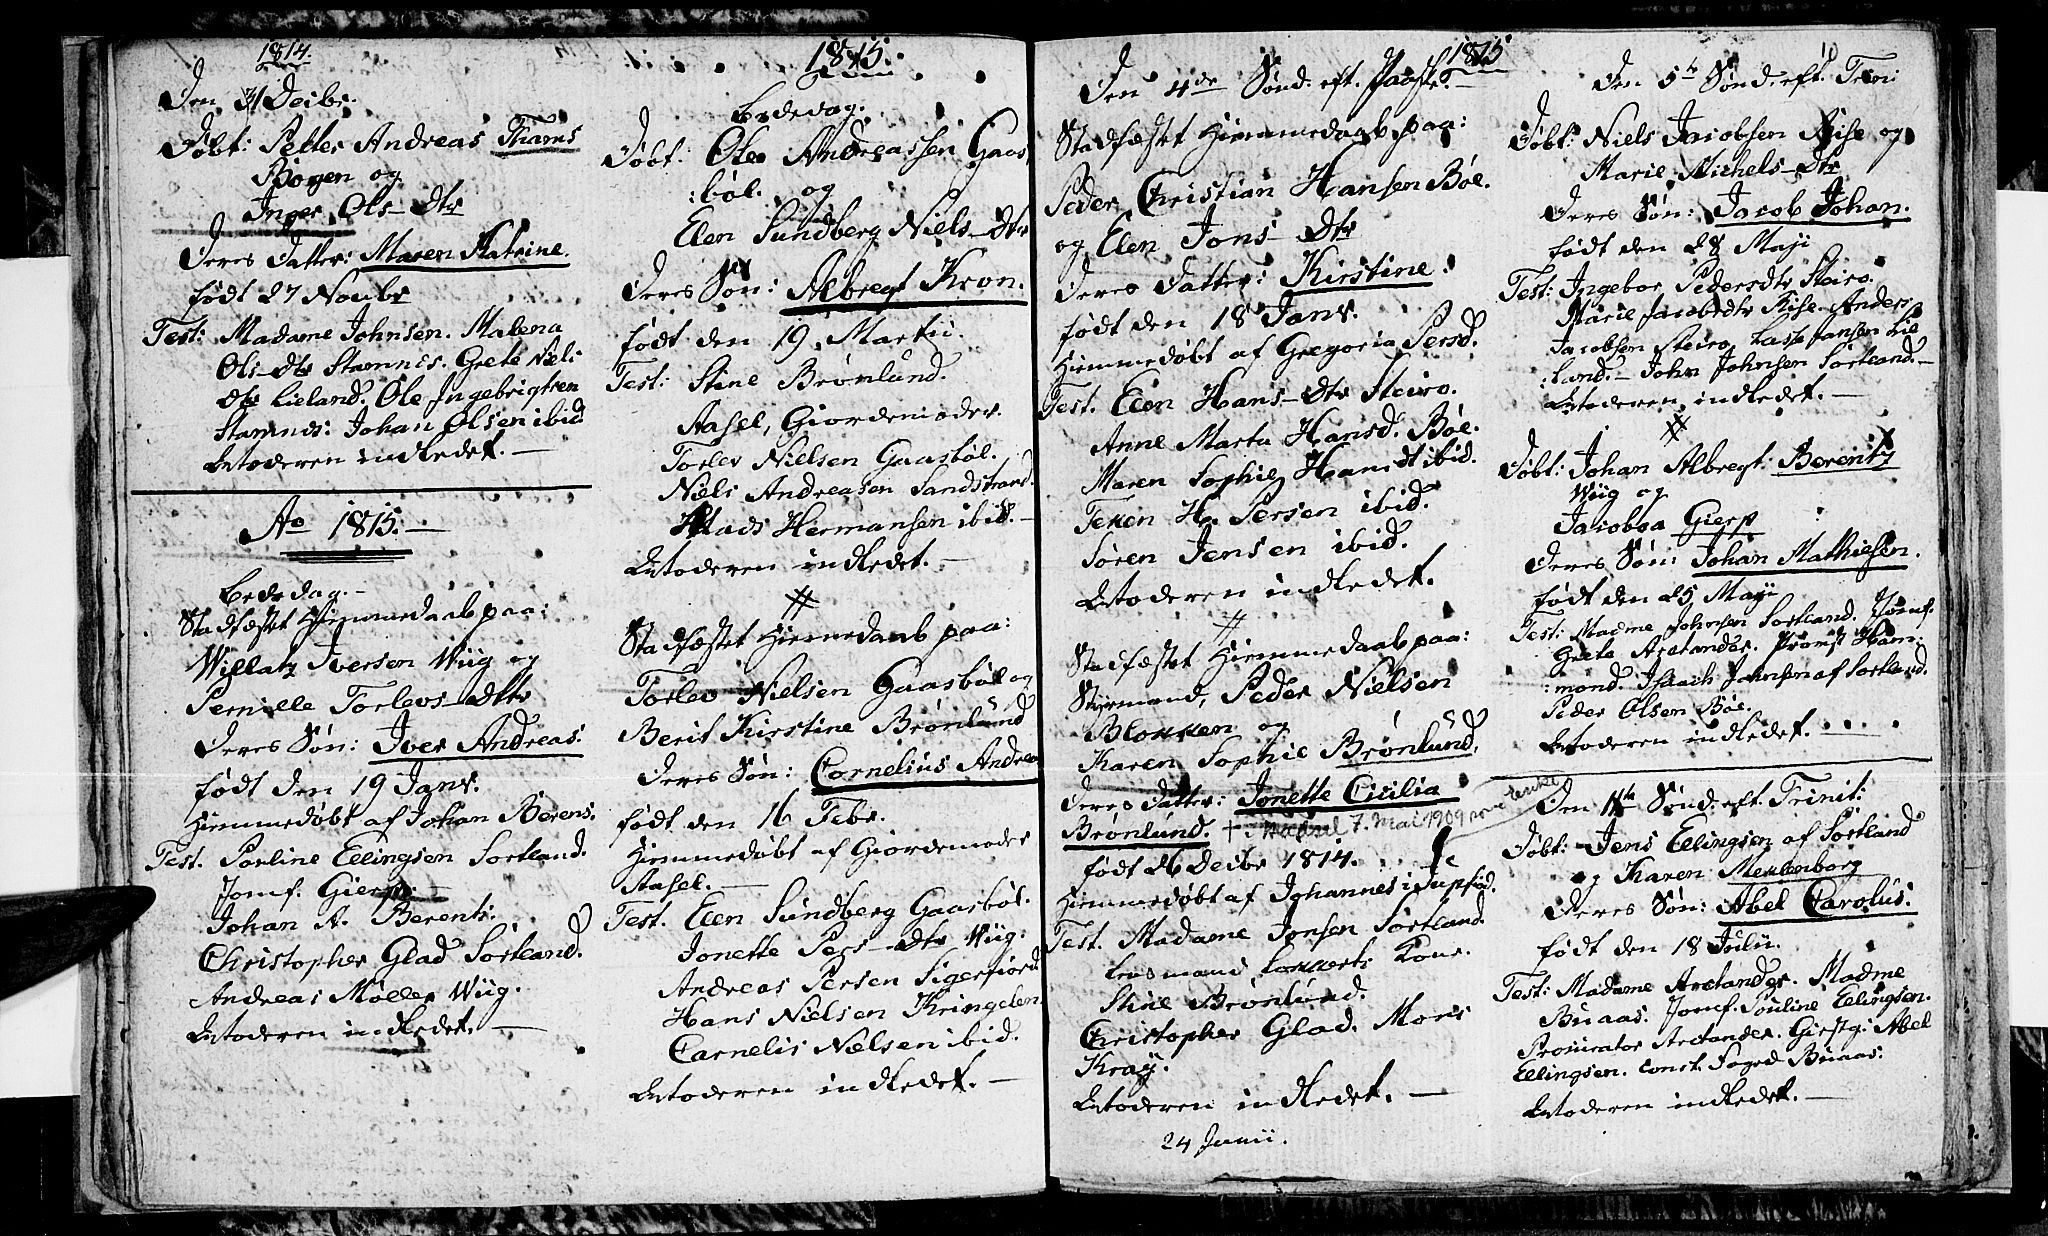 1814.
Den 31 Decbr.
Døbt: Petter Andreas Thams
Bogen og
Inger Ols-Dtr
Deres Datter: Maren Katrine.
født 27 Novbr
Test: Madame Johnsen. Malena
Ols-Dtr Stamnes. Grete Niels
Dtr Lieland. Ole Ingebrigtsen
Stamnes. Johan Olsen ibid.
Moderen indledet. —
Ao 1815. —
Bededag. —
Stadfæstet Hiemmedaab paa:
Willatz Iversen Wiig og
Pernille Torlevs-Dttr
Deres Søn: Iver Andreas.
født den 19 Janv.
Hiemmedøbt af Johan Berens.
Test. Pouline Ellingsen Sortland.
Jomf: Gierp. —
Johan A. Berents.
Christopher Glad Sortland.
Andreas Møller Wiig.
Moderen indledet. —
1815.
Bededag.
Døbt: Ole Andreassen Gaas
:bøl. og
Elen Sundberg Niels-Dtr
Deres Søn: Albregt Kron.
født den 19 Martii.
Test: Stine Brønlund.
Aasel, Giordemoder.
Torlev Nielsen Gaasbøl.
Niels Andreasen Sandstrand.
Mads Hermansen ibid. —
Moderen indledet. —
Stadfæstet Hiemmedaab paa:
Torlev Nielsen Gaasbøl og
Berit Kirstine Brønlund
Deres Søn: Cornelius Andrea
født den 16 Febr.
Hiemmedøbt af Giordemoder
Aasel. —
Test. Elen Sundberg Gaasbøl.
Jonette Pers-Dtr Wiig.
Andreas Persen Sigerfiord
Hans Nielsen Kringelen
Carnelis Nielsen ibid.
Moderen indledet. —
1815
Den 4de Sønd. eft. Paaske. —
Stadfæstet Hiemmedaab paa:
Peder Christian Hansen Bøe.
og Elen Jons-Dtr
Deres Datter: Kirstine.
født den 18 Janv.
Hiemmedøbt af Gregoria Persd.
Test. Elen Hans-Dtr Steiro.
Anne Marta Hansd. Bøe.
Maren Sophie Hansdt ibid.
H. Persen ibid.
Søren Jensen ibid.
Moderen indledet.
Stadfæstet Hiemmedaab paa:
Styrmand, Peder Nielsen
Blokken og
Karen Sophie Brønlund.
Deres Datter: Jonette Cicilia
Brønlund. † 7. Mai 1909
født 26 Decbr 1814.
Hiemmedøbt af Johannes i
Test. Madame Jonsen Sortland.
Lensmand Kone.
Stine Brønlund.
Christopher Glad. Mons
Kray.
Moderen indledet. —
24 Junii.
10
Den 5te Sønd eft. Trin:
Døbt: Niels Jacobsen Kise og
Marie Michels-Dtr
Deres Søn: Jacob Johan.
født den 28 Maji
Test: Ingebor Pedersdtr Steiro.
Marie Jacobsdtr Kise. Anders
Jacobsen Steiro. Lasse Jansen Lie
:land. — John Johnsen Sortland. —
Moderen indledet. —
Døbt: Johan Albregt Berentz
Wiig og
Jacobæa Gierp
Deres Søn: Johan Mathiesen.
født den 25 Maji
Test: Madme Johnsen Sortland. Jomf.
Grete Arctander. Provst Ham:
:mond. Isaach Johnsen af Sortland.
Peder Olsen Bøe.
Moderen indledet. —
Den 11te Sønd. eft. Trinit:
Døbt: Jens Ellingsen af Sortland
og Karen Meklenborg
Deres Søn: Abel Carolus.
født den 18 Julii.
Test: Madame Arctander. Madme
Buaas. Jomf. Pouline Ellingsen.
Procurator Arctander. Giestg: Abel
Ellingsen. Const. Foged Buaas.
Moderen indledet. —